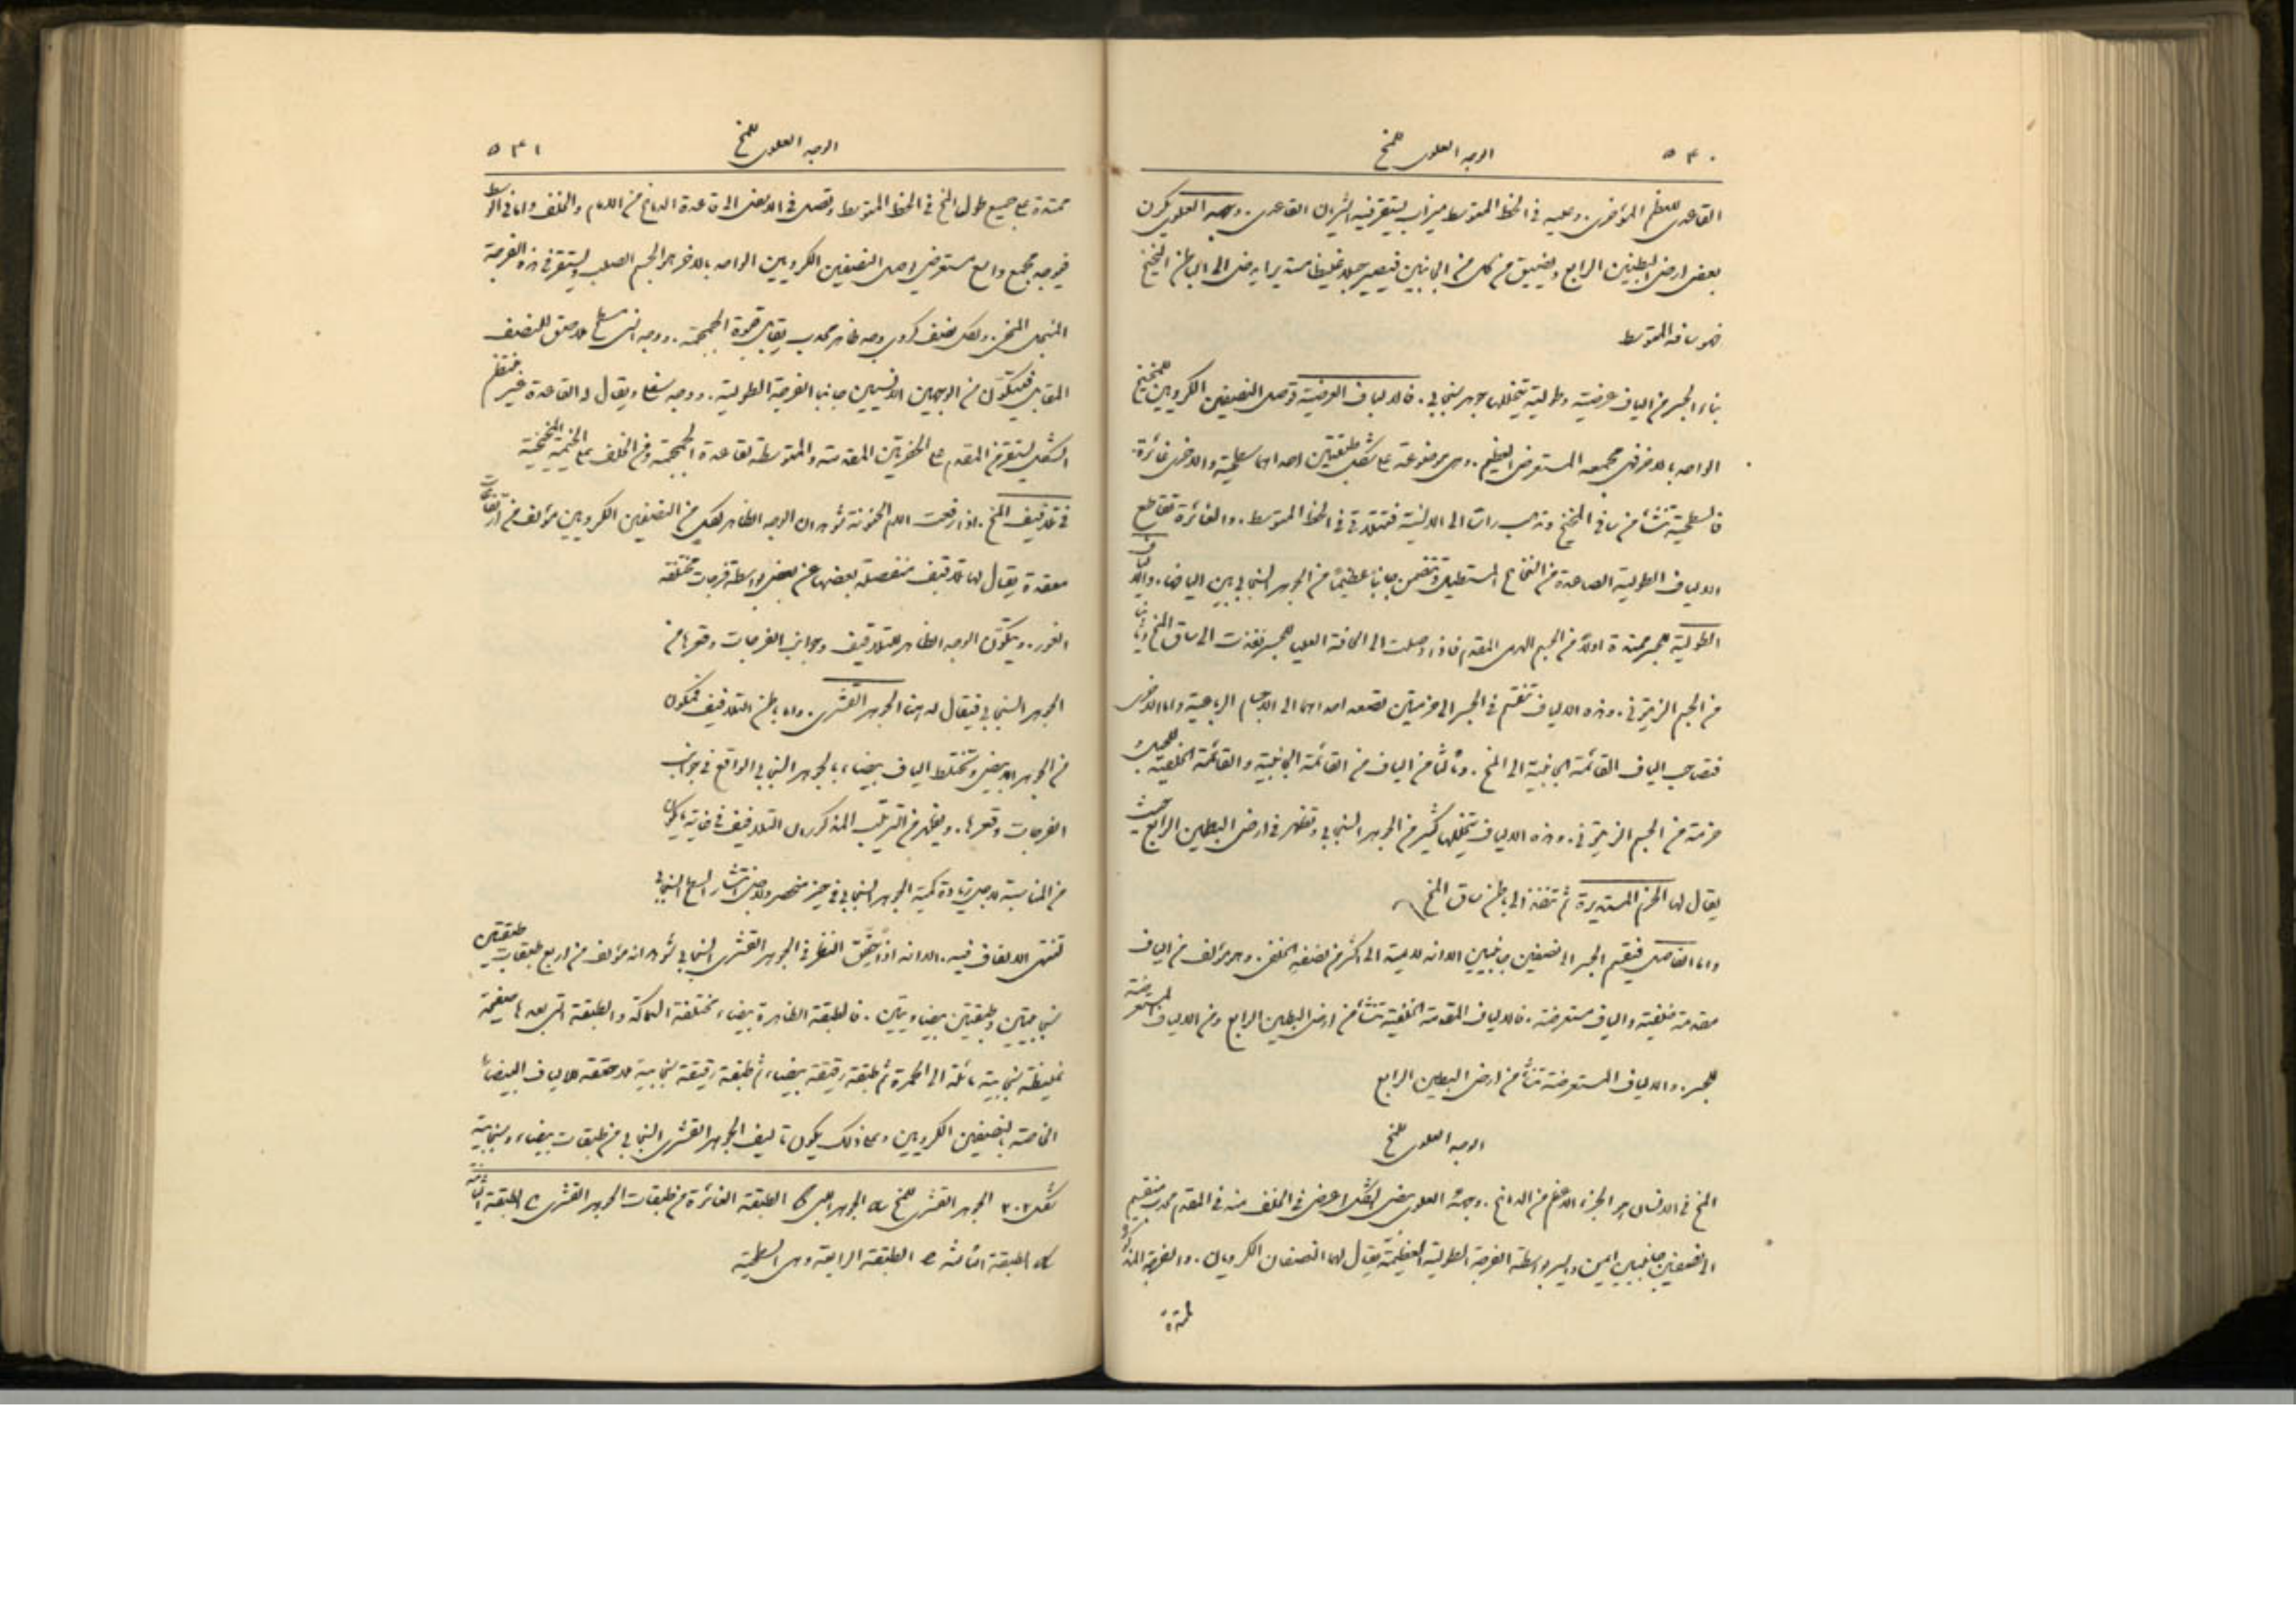 ٥٤٠ الوجه العلوي للمخ
القاعدي للعظم المؤخري. وعليه في الخط المتوسط ميزاب يستقر فيه الشريان القاعدي. ووجهه العلوي يكون
بعض ارض البطين الرابع ويضيق من كل من الجانبين فيصير حبلا غليظا مستديرا يدخل الى الباطن المخيخ
فهو ساقه المتوسط
بناء الجسر من الياف عرضية وطولية يتخللها جوهر سنجابي. فالالياف العرضية توصل النصفين الكرويين للمخيخ
الواحد بالاخر فهي مجمعه المستعرض العظيم. وهي موضوعة على شكل طبقتين احداهما سطحية والاخرى غائرة.
فالسطحية تنشأ من ساقي المخيخ وتذهب رأسا الى الانسية فتتلاقى في الخط المتوسط. والغائرة تقاطع
الالياف الطولية الصاعدة من النخاع المستطيل وتتضمن جانبا عظيما من الجوهر السنجابي بين اليافها. والالياف
الطولية للجسر ممتدة اولا من الجسم الهرمي المقدم فاذا وصلت الى الحافة العليا للجسر نفذت الى ساق المخ وثانيا
من الجسم الزيتوني. وهذه الالياف تنقسم في الجسر الى حزمتين تصعد احداهما الى الاجسام الرباعية واما الاخرى
فتصاحب الياف القائمة الجانبية الى المخ. وثالثا من الياف من القائمة الجانبية والقائمة الخلفية للحبل و
حزمة من الجسم الزيتوني. وهذه الالياف يتخللها كثير من الجوهر السنجابي وتظهر في ارض البطين الرابع حيث
يقال لها الحزم المستديرة ثم تنفذ الى باطن ساق المخ
واما الفاصل فيقسم الجسر الى نصفين جانبيين الا انه لا يمتد الى اكثر من نصفه الخلفي. وهو مؤلف من الياف
مقدمة خلفية والياف مستعرضة. فالالياف المقدمة الخلفية تنشأ من ارض البطين الرابع ومن الالياف المستعرضة
للجسر. والالياف المستعرضة تنشأ من ارض البطين الرابع
الوجه العلوي للمخ
المخ في الانسان هو الجزء الاعظم من الدماغ. وجهه العلوي بيضي الشكل اعرض في الخلف منه في المقدم محدب منقسم
الى نصفين جانبيين ايمن وايسر بواسطة الفرجة الطولية العظيمة يقال لهما النصفان الكرويان. والفرجة المذكورة
ممتدة
الوجه العلوي للمخ ٥٤١
ممتدة على جميع طول المخ في الخط المتوسط وتصل في الانغراض الى قاعدة الدماغ من الامام والخلف واما في الوسط
فيوجد مجمع واسع مستعرض يوصل النصفين الكرويين الواحد بالاخر هو الجسم الصلب ويستقر في هذه الفرجة
المنجل المخي. ولكل نصف كروي وجه ظاهر محدب يقابل قبوة الجمجمة. ووجه انسي مسطح ملاصق للنصف
المقابل فيتكون من الوجهين الانسيين جانبا الفرجة الطولية. ووجه سفلي ويقال له القاعدة غير منتظم
الشكل يستقر من المقدم على الحفرتين المقدمة والمتوسطة لقاعدة الجمجمة ومن الخلف على الخيمة المخيخية
في تلافيف المخ. اذا رفعت الام الحنونة شوهد ان الوجه الظاهر لكل من النصفين الكرويين مؤلف من ارتفاعات
معقدة يقال لها تلافيف منفصلة بعضها عن بعض بواسطة فرجات مختلفة
الغور. ويتكون الوجه الظاهر للتلافيف وجوانب الفرجات وقعرها من
الجوهر السنجابي فيقال له هنا الجوهر القشري. واما باطن التلافيف فمكون
من الجوهر الابيض وتختلط الياف بيضاء بالجوهر السنجابي الواقع في جوانب
الفرجات وقعرها. ويظهر من الترتيب المذكور ان التلافيف في غاية ما يكون
من المناسبة لاجل زيادة كمية الجوهر السنجابي في حيز منحصر ولاجل انتشار السطح السنجابي
تنتهي الالياف فيه. الا انه اذا حقق النظر في الجوهر القشري السنجابي شوهد انه مؤلف من اربع طبقات طبقتين
سنجابيتين وطبقتين بيضاويتين. فالطبقة الظاهرة بيضاء مختلفة السماكة والطبقة التي بعدها صفيحة
غليظة سنجابية مائلة الى الحمرة ثم طبقة رقيقة بيضاء ثم طبقة رقيقة سنجابية ملاصقة للالياف البيضاء
الخاصة بالنصفين الكرويين وعلى ذلك يكون تأليف الجوهر القشري السنجابي من طبقات بيضاء وسنجابية
شكل ٢٠٢ الجوهر القشري للمخ a الجوهر الابيض b الطبقة الغائرة من طبقات الجوهر القشري c الطبقة الثانية
d الطبقة الثالثة e الطبقة الرابعة وهي السطحية